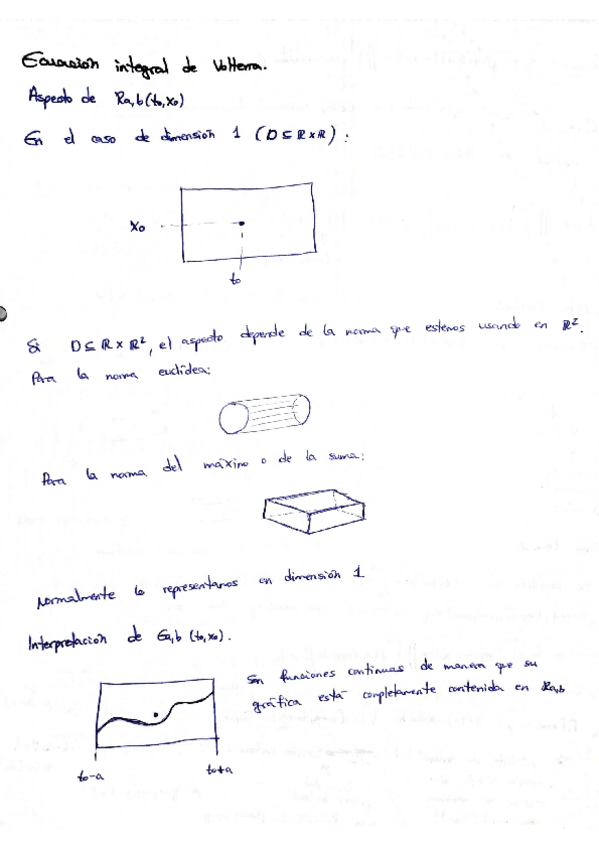 Ecuación integral de Volterra.
Aspecto de Ra,b(to,xo)
En el caso de dimensión 1 (D⊆ℝxℝ):
xo
to
Si D⊆ℝxℝ², el aspecto depende de la norma que estemos usando en ℝ².
Para la norma euclídea:
Para la norma del máximo o de la suma:
Normalmente lo representamos en dimensión 1
Interpretación de Ea,b (to,xo).
Son funciones continuas de manera que su
gráfica está completamente contenida en Ra,b
to-a
to+a